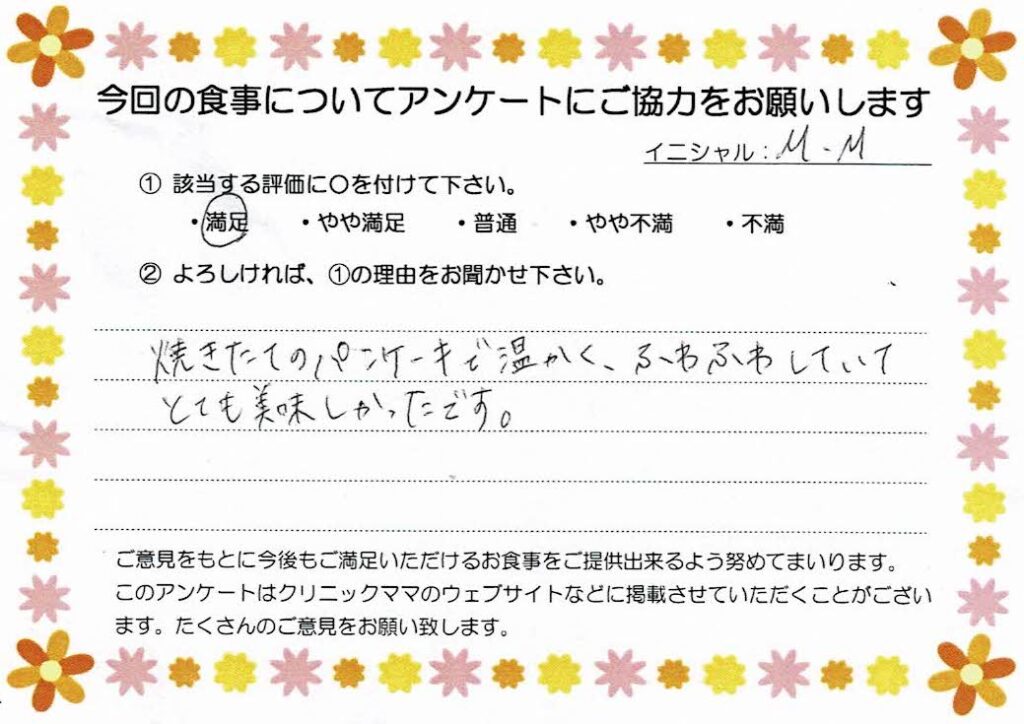 今回の食事についてアンケートにご協力をお願いします
イニシャル：M.M
① 該当する評価に〇を付けて下さい。
・満足 ・やや満足 ・普通 ・やや不満 ・不満
② よろしければ、①の理由をお聞かせ下さい。
焼きたてのパンケーキで温かく、ふわふわしていて
とても美味しかったです。
ご意見をもとに今後もご満足いただけるお食事をご提供出来るよう努めてまいります。
このアンケートはクリニックママのウェブサイトなどに掲載させていただくことがござい
ます。たくさんのご意見をお願い致します。